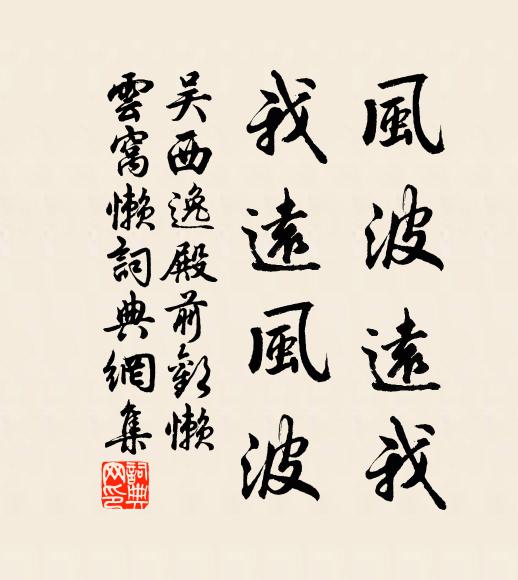 風波遠我
我遠風波
吴西逸殿前歡懒
雲窩懒詞典網集
詞典网印